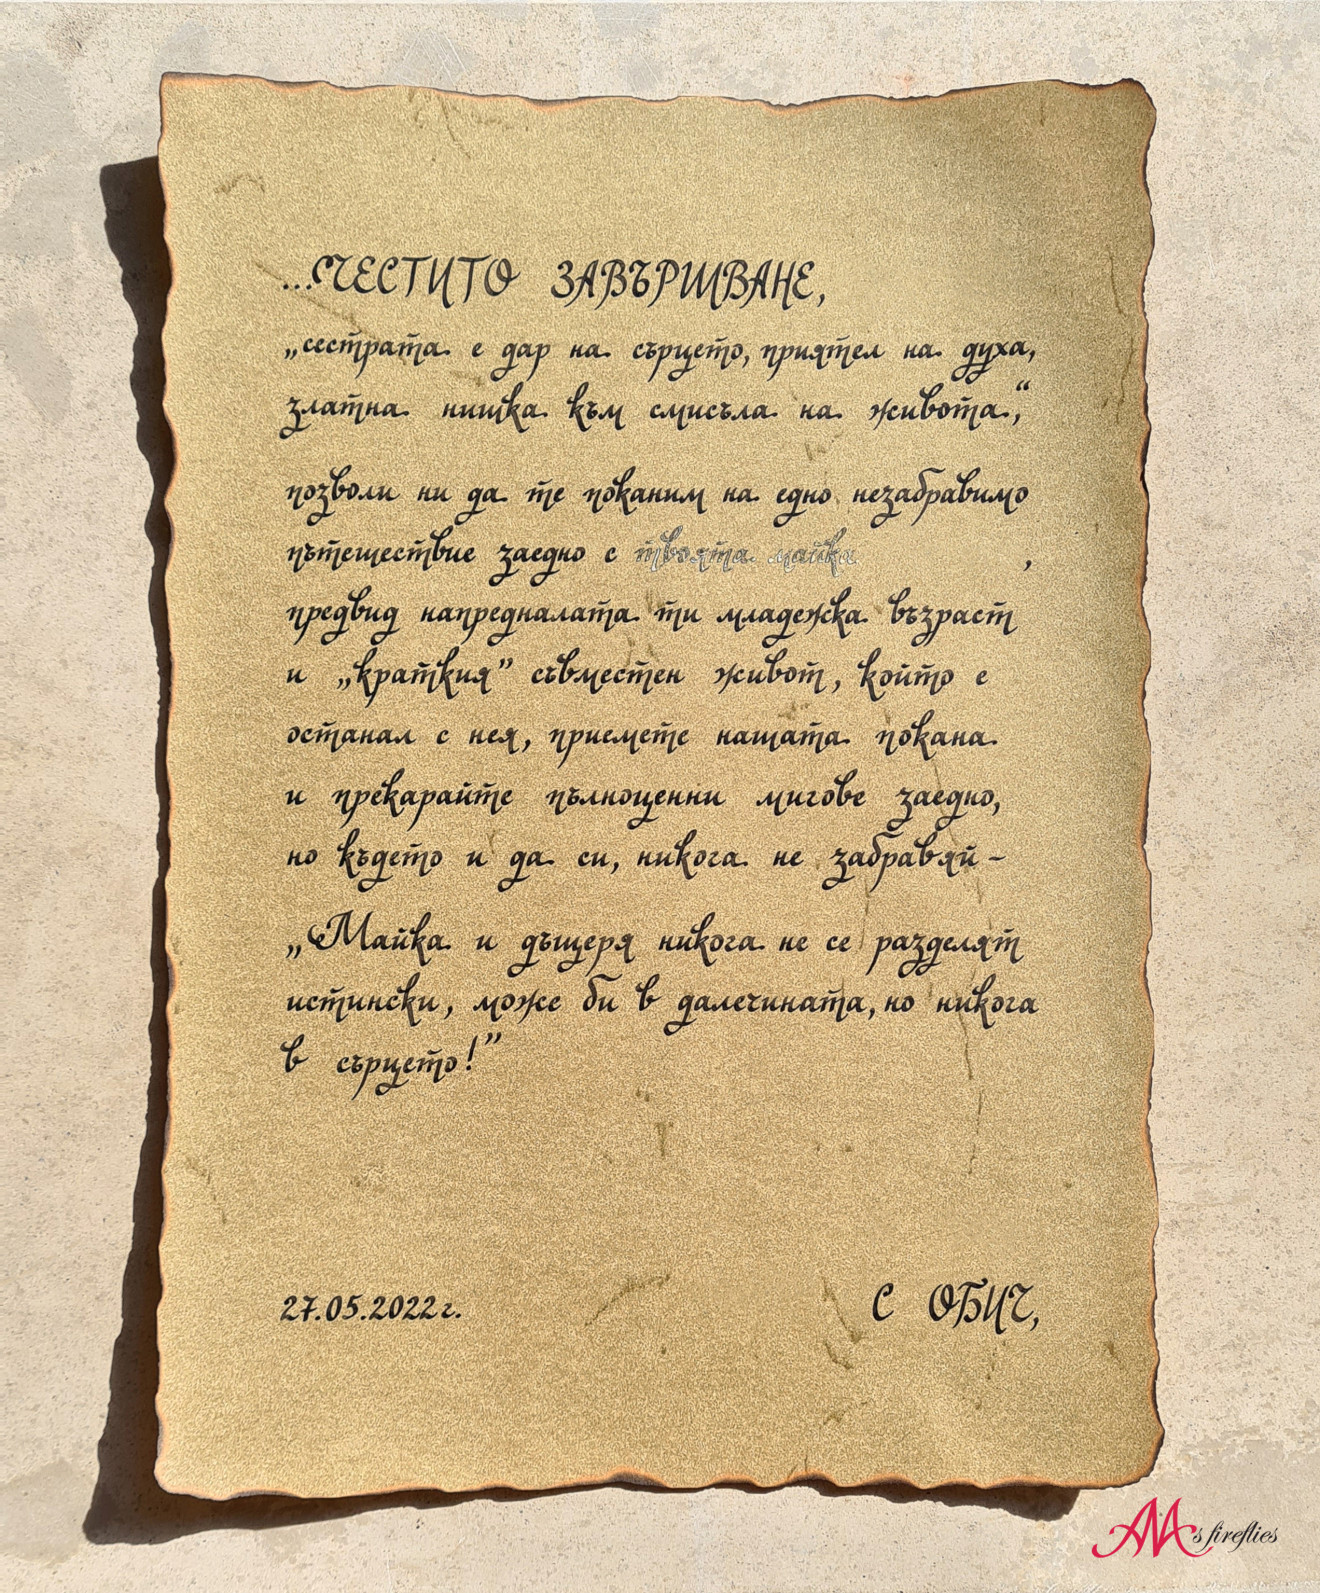 ...ЧЕСТИТО ЗАВЪРШВАНЕ,
„сестрата е дар на сърцето, приятел на духа,
златна нишка към смисъла на живота,“
позволи ни да те поканим на едно незабравимо
пътешествие заедно с твоята майка ,
предвид напредналата ти младежка възраст
и „краткия” съвместен живот, който е
останал с нея, приемете нашата покана
и прекарайте пълноценни мигове заедно,
но където и да си, никога не забравяй –
„Майка и дъщеря никога не се разделят
истински, може би в далечината, но никога
в сърцето!”
27.05.2022г.
С ОБИЧ,
AAs fireflies